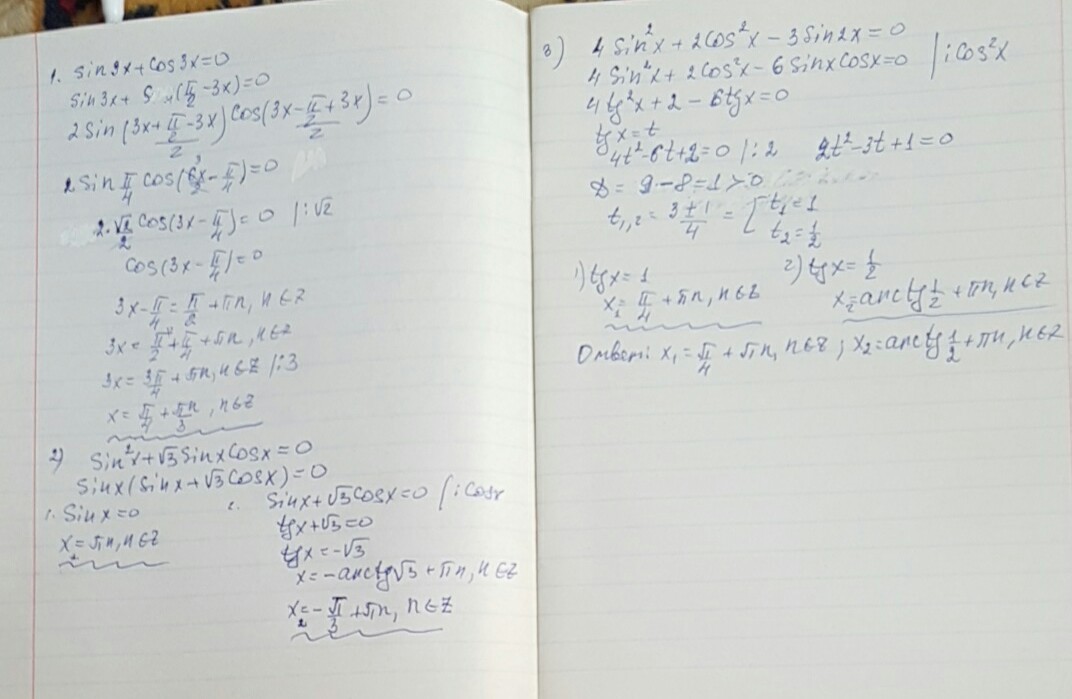 1. sin3x+cos3x=0
sin3x+ Sin(π/2-3x)=0
2sin (3x+π/2-3x)/2 cos(3x-π/2+3x)/2=0
2 sin π/4 cos(6x/2-π/4)=0
2·√2/2 cos(3x-π/4)=0 |:√2
cos(3x-π/4)=0
3x-π/4=π/2+πn, n∈Z
3x=π/2+π/4+πn, n∈Z
3x=3π/4+πn, n∈Z |:3
x=π/4+πn/3, n∈Z
2) Sin²x+√3sinxcosx=0
sinx(sinx+√3cosx)=0
1. sinx=0
x₁=πn, n∈Z
2. sinx+√3cosx=0 |:cosx
tgx+√3=0
tgx=-√3
x=-arctg√3+πn, n∈Z
x₂=-π/3+πn, n∈Z
3) 4sin²x+2cos²x-3sin2x=0
4sin²x+2cos²x-6sinxcosx=0 |:cos²x
4tg²x+2-6tgx=0
tgx=t
4t²-6t+2=0 |:2 2t²-3t+1=0
D=9-8=1>0
t₁,₂=3±1/4=[t₁=1
t₂=1/2
1) tgx=1
x₁=π/4+πn, n∈Z
2) tgx=1/2
x₂=arctg1/2+πn, n∈Z
Ответ: x₁=π/4+πn, n∈Z; x₂=arctg1/2+πn, n∈Z